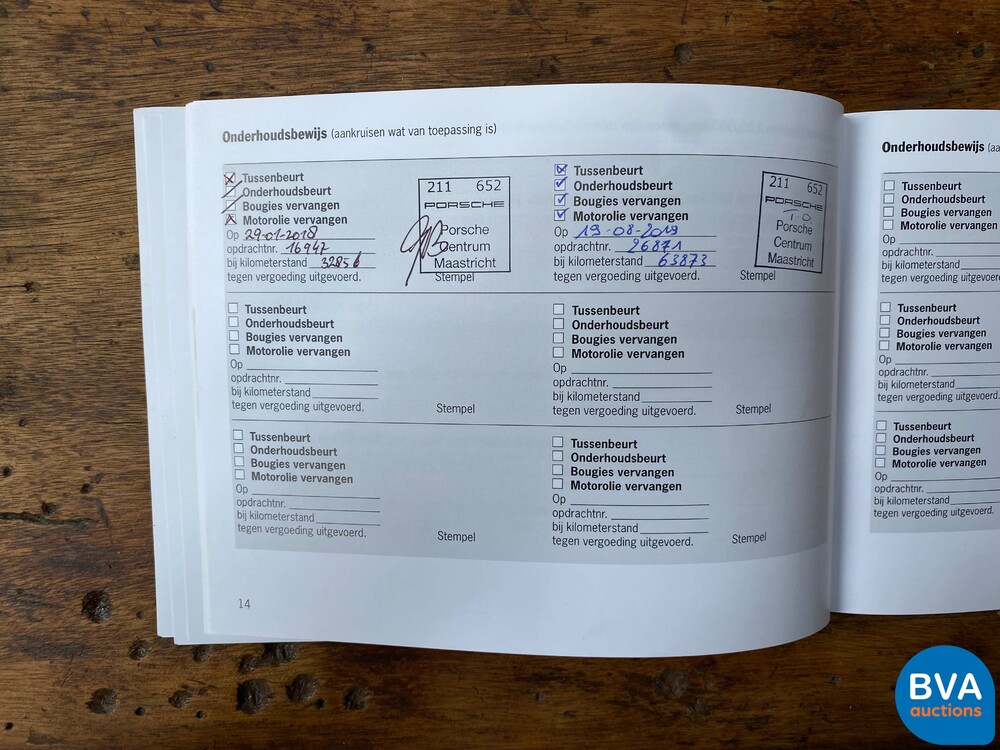 Onderhoudsbewijs (aankruisen wat van toepassing is)
Tussenbeurt
Onderhoudsbeurt
Bougies vervangen
Motorolie vervangen
Op 29-01-2018
opdrachtnr. 16947
bij kilometerstand 32856
tegen vergoeding uitgevoerd.
211 652
PORSCHE
Porsche
Centrum
Maastricht
Stempel
Tussenbeurt
Onderhoudsbeurt
Bougies vervangen
Motorolie vervangen
Op 19-08-2019
opdrachtnr. 26871
bij kilometerstand 63873
tegen vergoeding uitgevoerd.
211 652
PORSCHE
T.O.
Porsche
Centrum
Maastricht
Stempel
Tussenbeurt
Onderhoudsbeurt
Bougies vervangen
Motorolie vervangen
Op
opdrachtnr.
bij kilometerstand
tegen vergoeding uitgevoerd.
Stempel
Tussenbeurt
Onderhoudsbeurt
Bougies vervangen
Motorolie vervangen
Op
opdrachtnr.
bij kilometerstand
tegen vergoeding uitgevoerd.
Stempel
Tussenbeurt
Onderhoudsbeurt
Bougies vervangen
Motorolie vervangen
Op
opdrachtnr.
bij kilometerstand
tegen vergoeding uitgevoerd.
Stempel
Tussenbeurt
Onderhoudsbeurt
Bougies vervangen
Motorolie vervangen
Op
opdrachtnr.
bij kilometerstand
tegen vergoeding uitgevoerd.
Stempel
14
Onderhoudsbewijs (aa
Tussenbeurt
Onderhoudsbeurt
Bougies vervangen
Motorolie vervangen
Op
opdrachtnr.
bij kilometerstand
tegen vergoeding uitgevoer
Tussenbeurt
Onderhoudsbeurt
Bougies vervangen
Motorolie vervangen
Op
opdrachtnr.
bij kilometerstand
tegen vergoeding uitgevoerd.
Tussenbeurt
Onderhoudsbeurt
Bougies vervangen
Motorolie vervangen
Op
opdrachtnr.
bij kilometerstand
tegen vergoeding uitgevoerd.
BVA
auctions